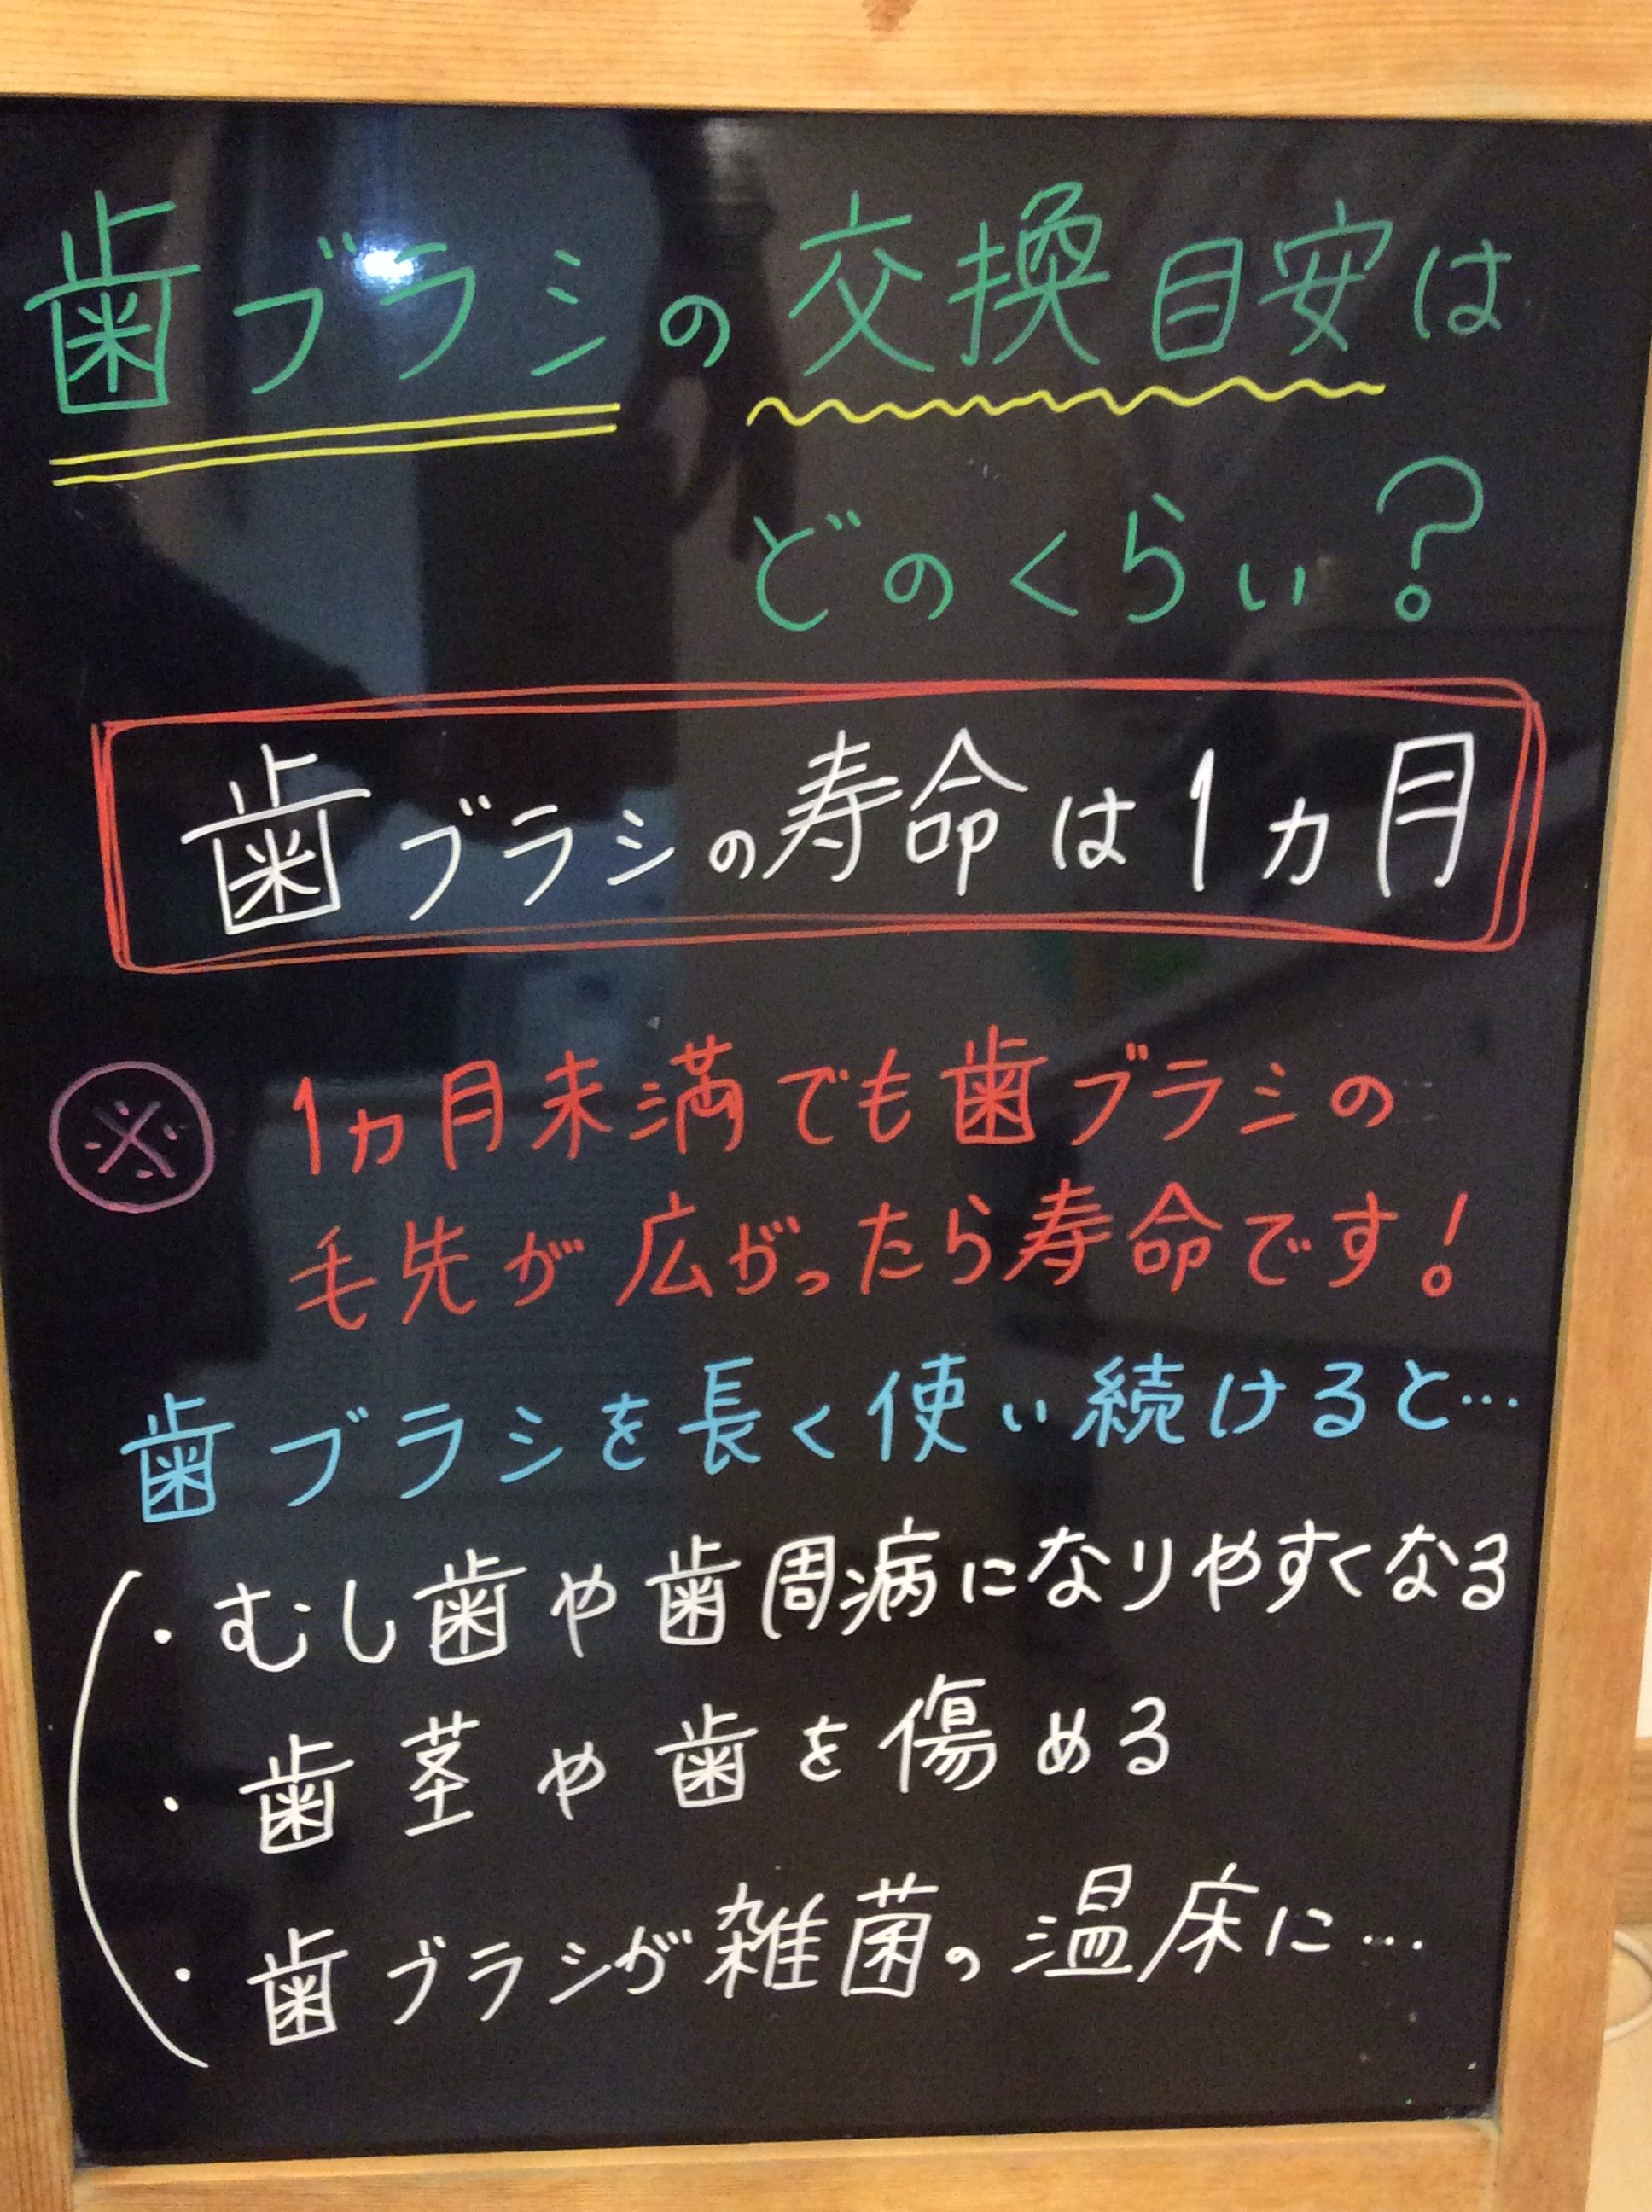 歯ブラシの交換目安は
どのくらい?
歯ブラシの寿命は1ヵ月
※ 1ヵ月未満でも歯ブラシの
毛先が広がったら寿命です!
歯ブラシを長く使い続けると…
・むし歯や歯周病になりやすくなる
・歯茎や歯を傷める
・歯ブラシが雑菌の温床に…